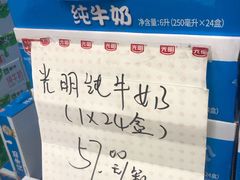 纯牛奶
净含量:6升(250毫升×24盒)
光明 光明 光明 光明
光明纯牛奶
(1×24盒)
57.00